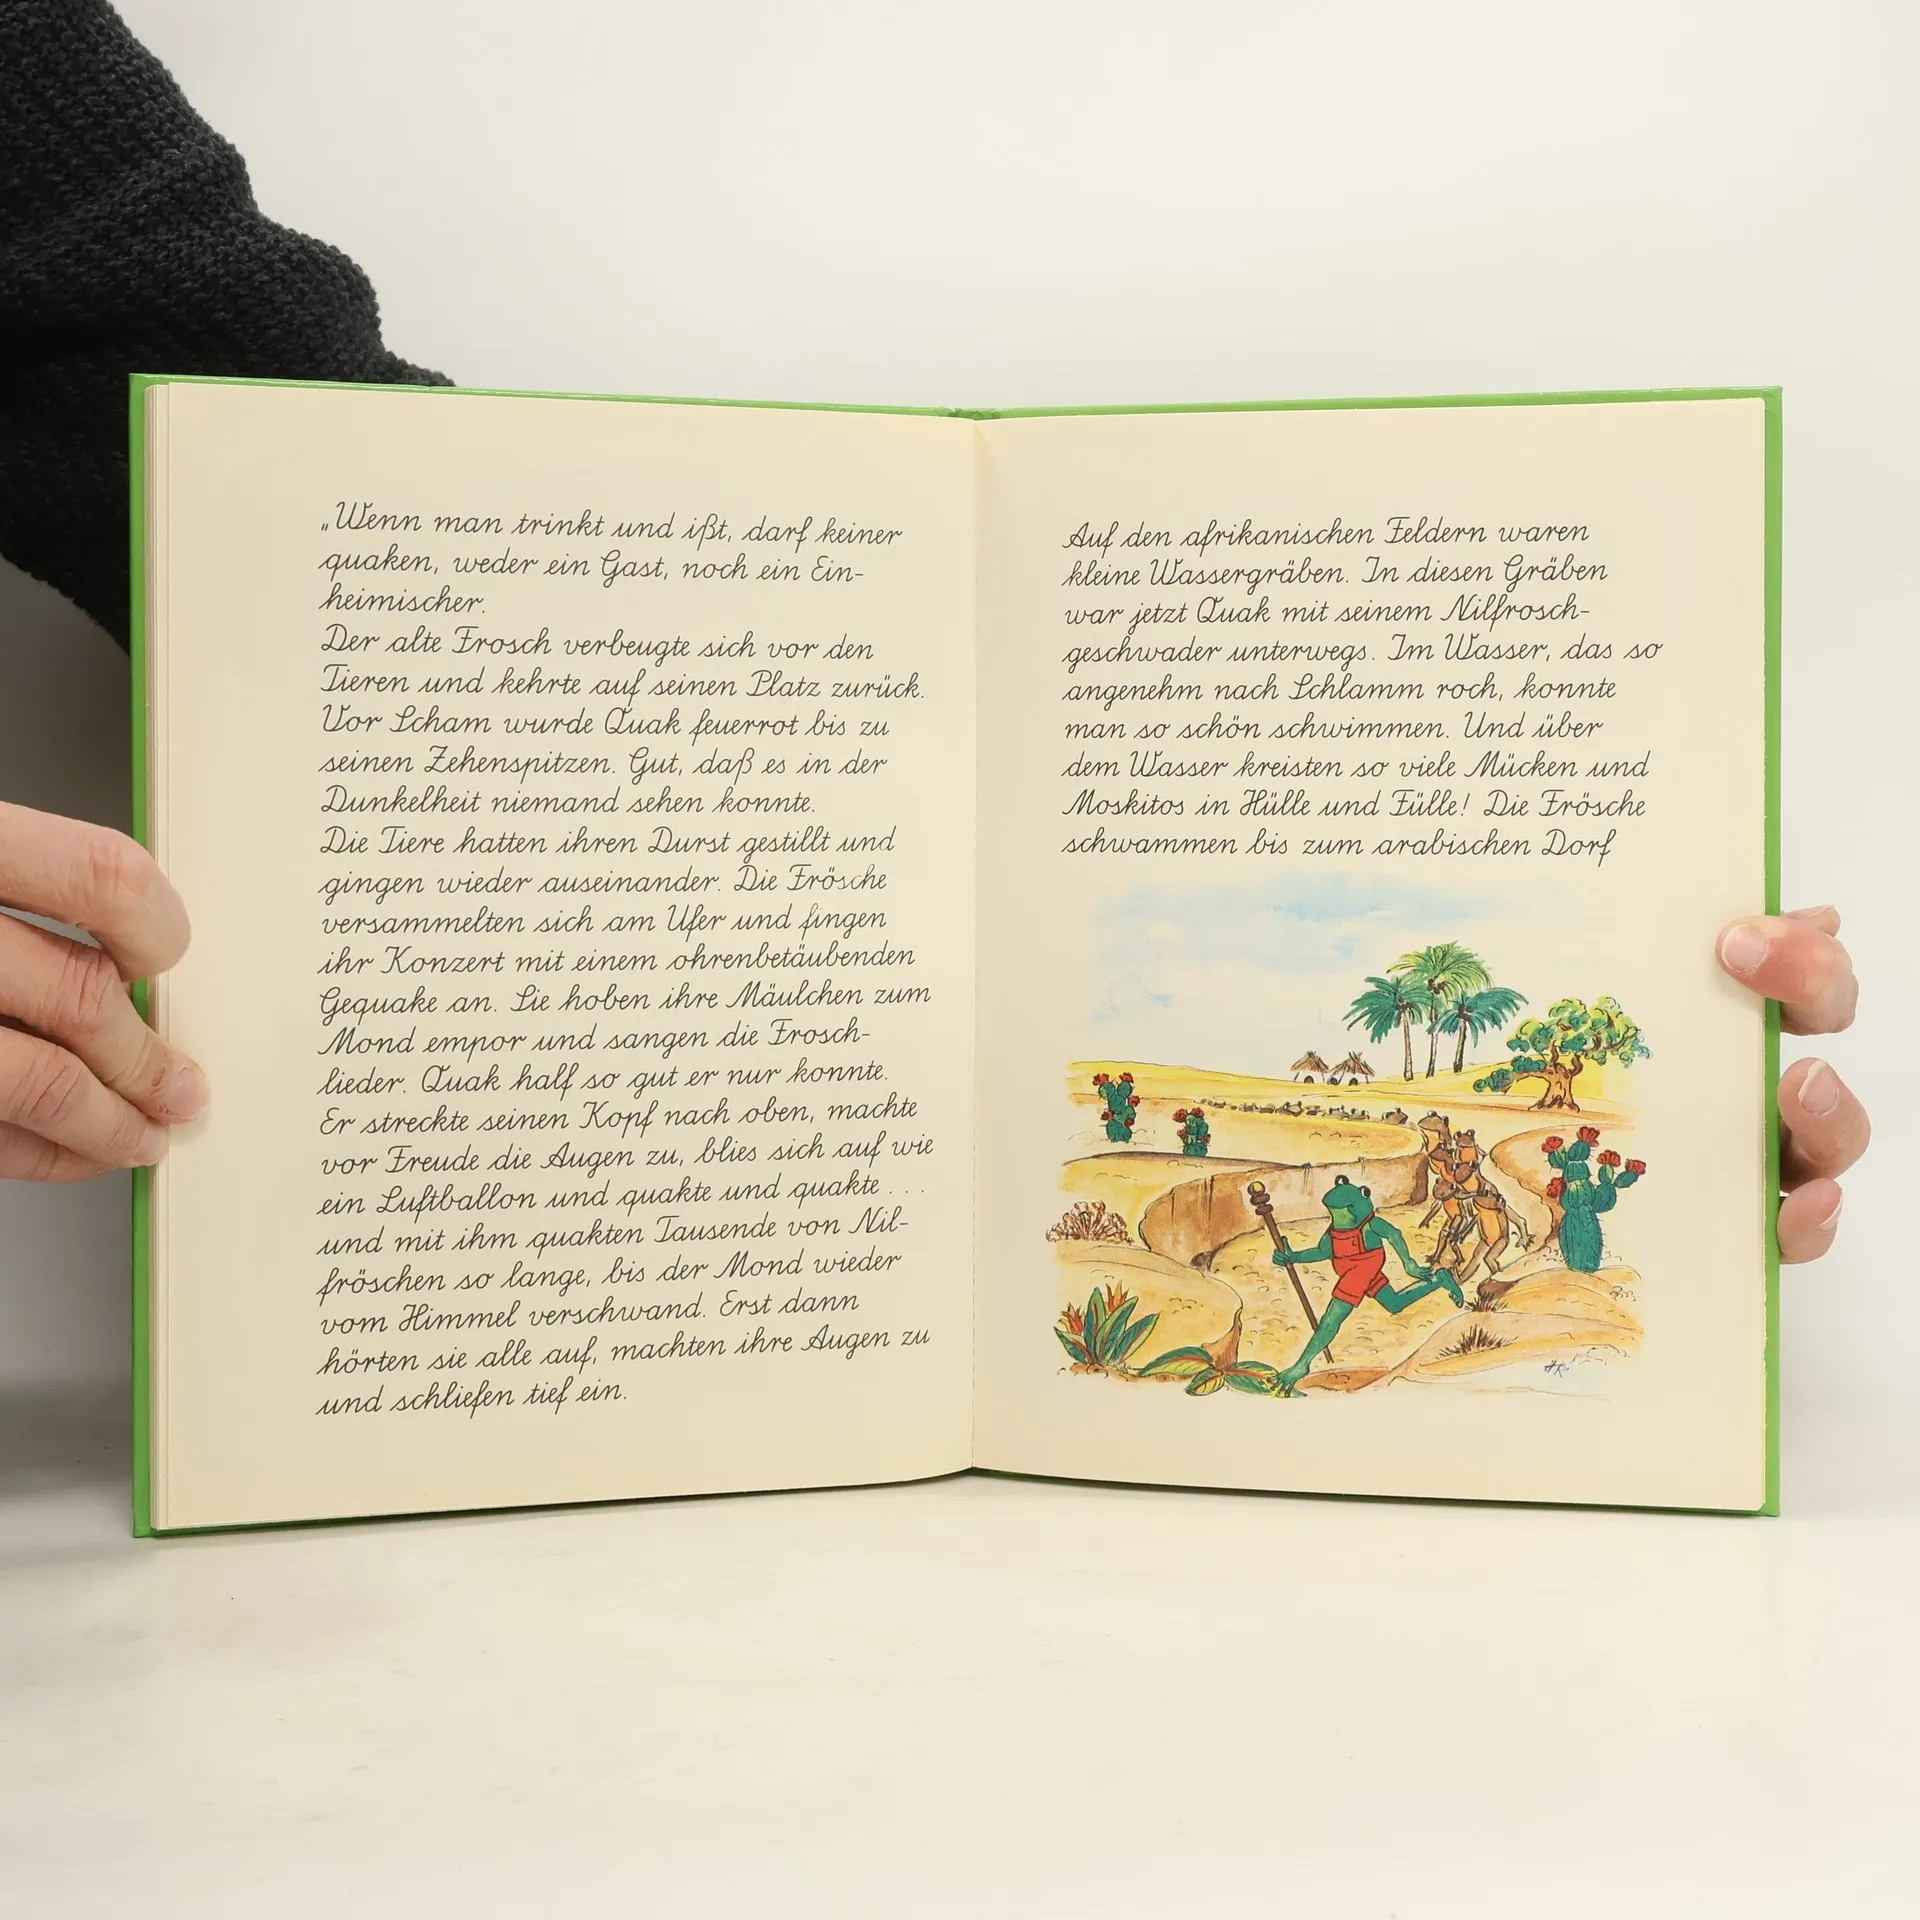 „Wenn man trinkt und ißt, darf keiner
quaken, weder ein Gast, noch ein Ein-
heimischer.
Der alte Frosch verbeugte sich vor den
Tieren und kehrte auf seinen Platz zurück.
Vor Scham wurde Quak feuerrot bis zu
seinen Zehenspitzen. Gut, daß es in der
Dunkelheit niemand sehen konnte.
Die Tiere hatten ihren Durst gestillt und
gingen wieder auseinander. Die Frösche
versammelten sich am Ufer und fingen
ihr Konzert mit einem ohrenbetäubenden
Gequake an. Sie hoben ihre Mäulchen zum
Mond empor und sangen die Frosch-
lieder. Quak half so gut er nur konnte.
Er streckte seinen Kopf nach oben, machte
vor Freude die Augen zu, blies sich auf wie
ein Luftballon und quakte und quakte . . .
und mit ihm quakten Tausende von Nil-
fröschen so lange, bis der Mond wieder
vom Himmel verschwand. Erst dann
hörten sie alle auf, machten ihre Augen zu
und schliefen tief ein.
Auf den afrikanischen Feldern waren
kleine Wassergräben. In diesen Gräben
war jetzt Quak mit seinem Nilfrosch-
geschwader unterwegs. Im Wasser, das so
angenehm nach Schlamm roch, konnte
man so schön schwimmen. Und über
dem Wasser kreisten so viele Mücken und
Moskitos in Hülle und Fülle! Die Frösche
schwammen bis zum arabischen Dorf